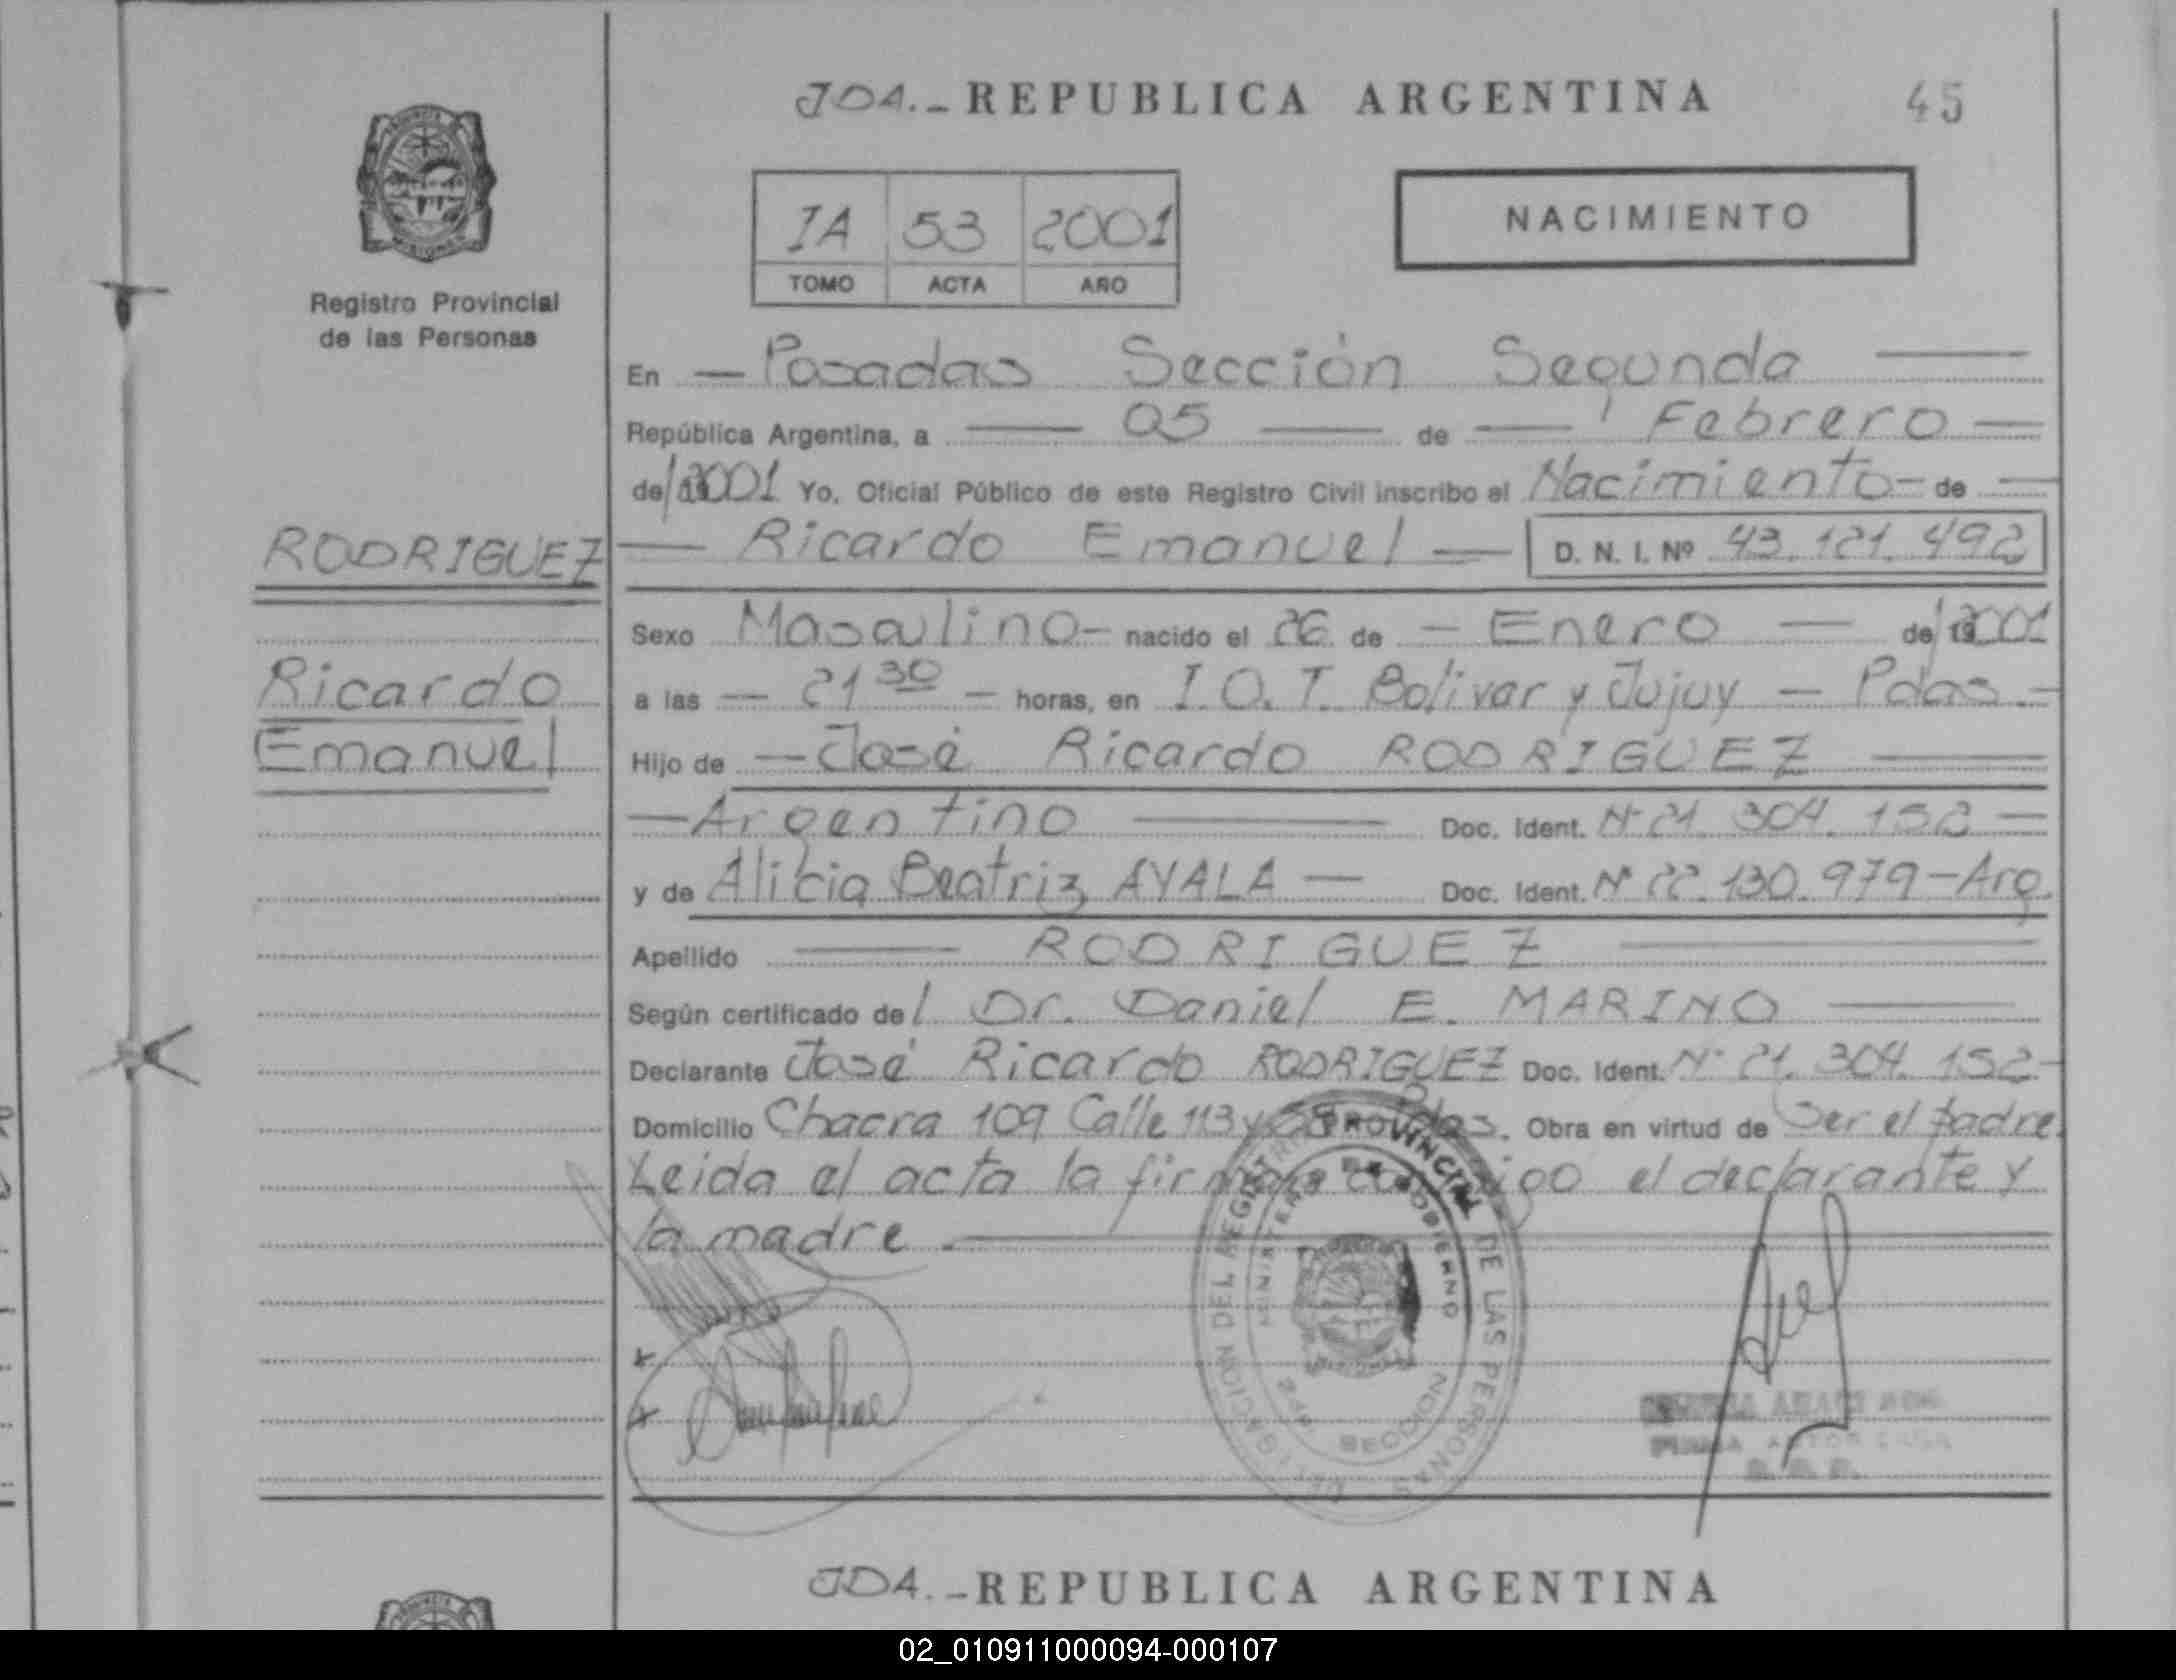 JDA. - REPUBLICA ARGENTINA 45
IA 53 2001
TOMO ACTA AÑO
NACIMIENTO
Registro Provincial
de las Personas
RODRIGUEZ
Ricardo
Emanuel
En — Posadas Sección Segunda —
República Argentina, a — 05 — de — Febrero —
de/2001 Yo, Oficial Público de este Registro Civil inscribo el Nacimiento - de —
— Ricardo Emanuel — D. N. I. Nº 43.121.492
Sexo Masculino - nacido el 26 de — Enero — de/2001
a las — 21 30 — horas, en I.O.T. Bolivar y Jujuy — Pdas. -
Hijo de — José Ricardo RODRIGUEZ —
— Argentino — Doc. Ident. Nº 21.304.152 —
y de Alicia Beatriz AYALA — Doc. Ident. Nº 22.130.979 - Arg.
Apellido — RODRIGUEZ —
Según certificado del Dr. Daniel E. MARINO —
Declarante José Ricardo RODRIGUEZ Doc. Ident. Nº 21.304.152 -
Domicilio Chacra 109 Calle 113 y Pdas. Obra en virtud de Ser el Padre.
Leida el acta la firman conmigo el declarante y
la madre —
DELEGACION DEL REGISTRO PROVINCIAL DE LAS PERSONAS
MINISTERIO DE GOBIERNO
2da SECCION
JDA. - REPUBLICA ARGENTINA
02_010911000094-000107